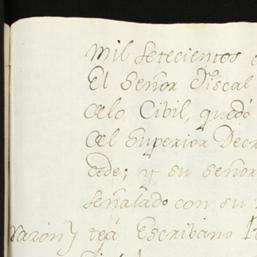 mil setecientos
El Señor Fiscal
de lo Cibil, quedó
del Superior Decr
cede; y su señor
señalado con su
razon) teá Escribano